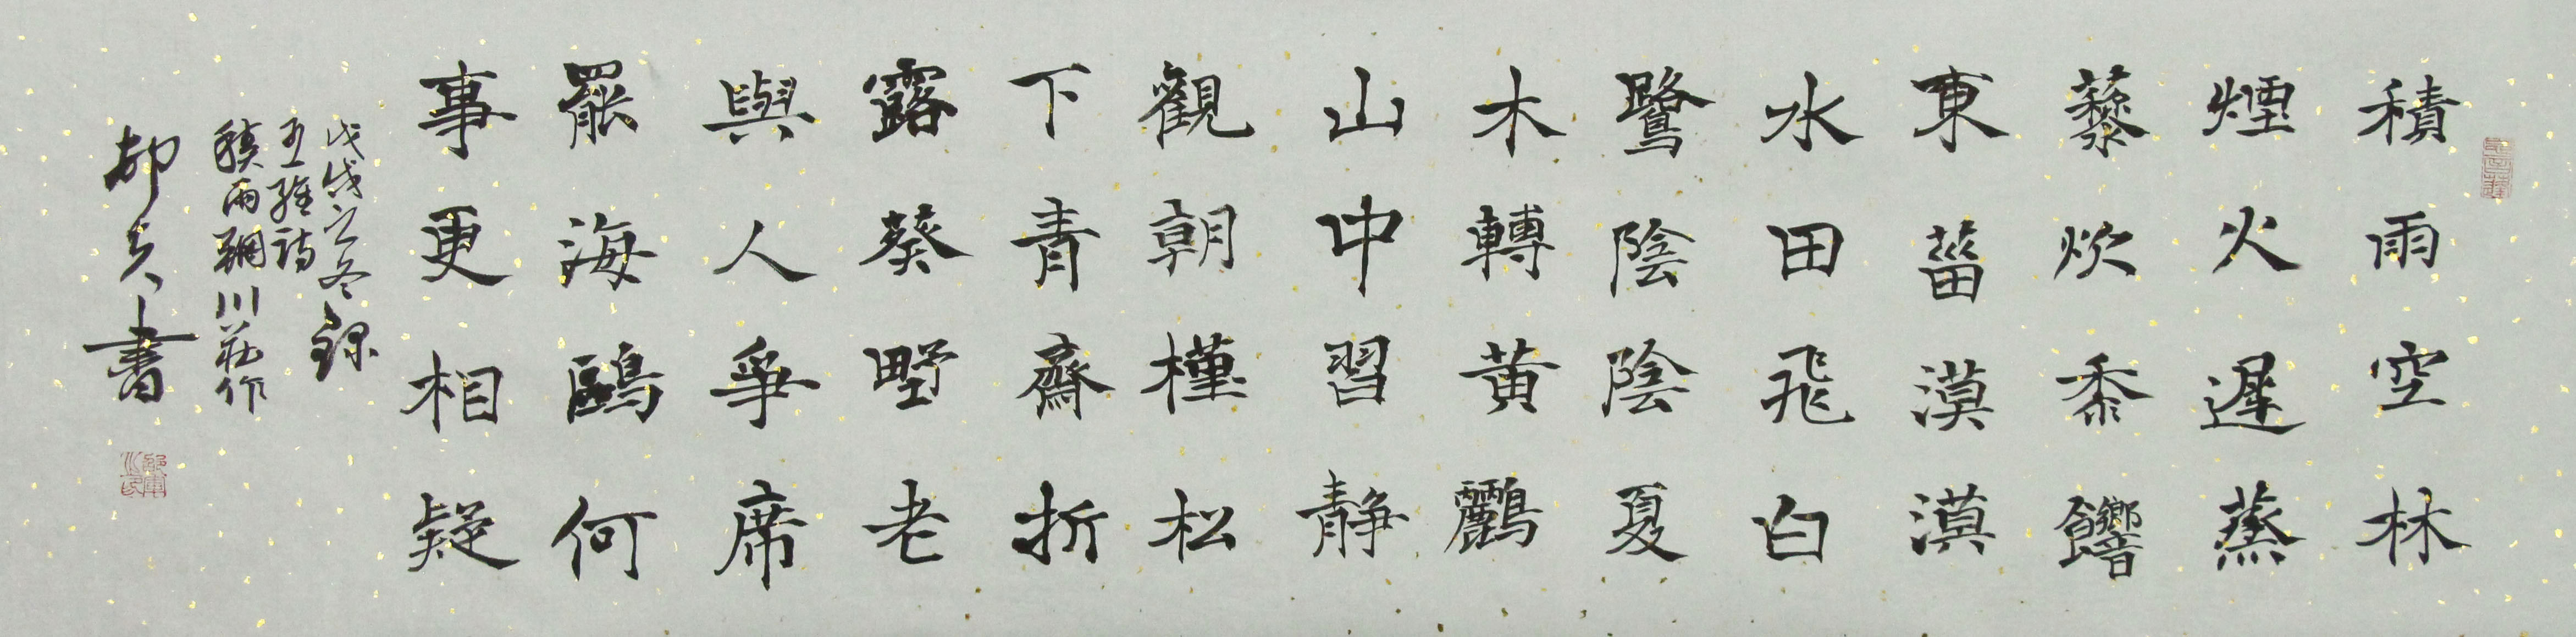 積雨空林
煙火遲蒸
藜炊黍饗
東菑漠漠
水田飛白
鷺陰陰夏
木轉黃鸝
山中習靜
觀朝槿松
下青齋折
露葵野老
與人爭席
罷海鷗何
事更相疑
戊戌立冬錄
王維詩
積雨輞川莊作
書